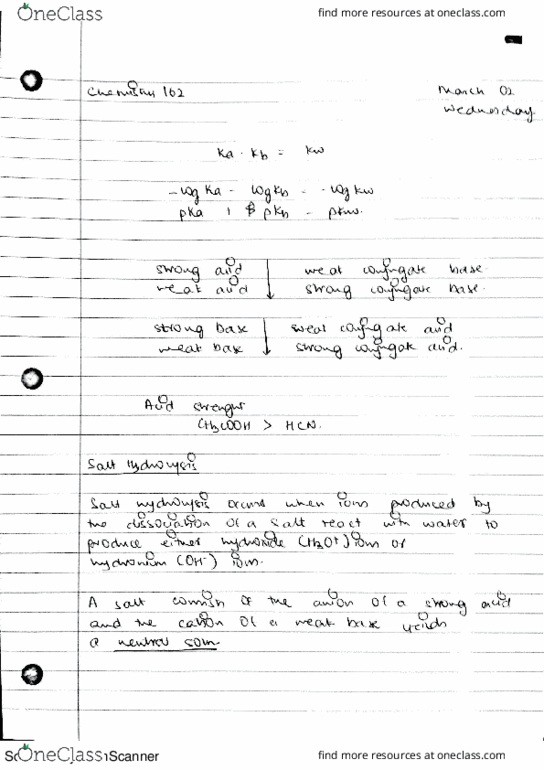 OneClass
find more resources at oneclass.com
Chemistry 162
March 02
Wednesday
Ka · Kb = Kw
-log Ka - log Kb = -log Kw
pKa + pKb = pKw.
strong acid weak conjugate base.
weak acid strong conjugate base.
strong base weak conjugate acid
weak base strong conjugate acid.
Acid strength
CH3COOH > HCN.
Salt Hydrolysis
Salt hydrolysis occurs when ions produced by
the dissociation of a salt react with water to
produce either hydroxide (H3O+) ions or
hydronium (OH-) ions.
A salt consists of the anion of a strong acid
and the cation of a weak base yields
a neutral soln.
OneClass
Scanner
find more resources at oneclass.com